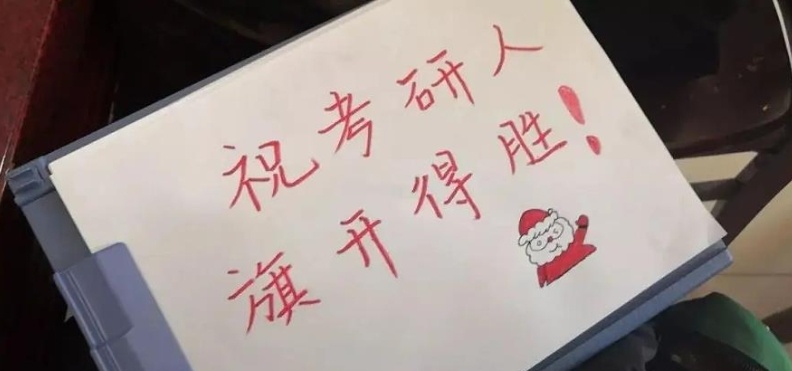 祝考研人
旗开得胜！